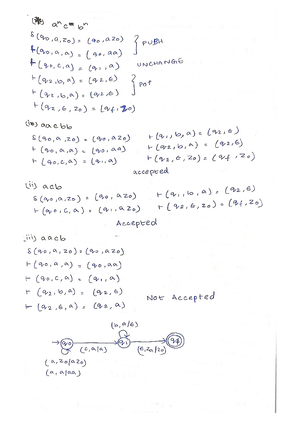 aⁿ c* bⁿ
δ(q0,a,z0) = (q0,az0)
⊢(q0,a,a) = (q0,aa) } PUSH
⊢(q0,c,a) = (q1,a) UNCHANGE
⊢(q2,b,a) = (q2,ϵ)
⊢(q2,b,a) = (q2,ϵ) } POP
⊢(q2,ϵ,z0) = (qf,z0)
aacbb
δ(q0,a,z0) = (q0,az0) ⊢(q1,b,a) = (q2,ϵ)
⊢(q0,a,a) = (q0,aa) ⊢(q2,b,a) = (q2,ϵ)
⊢(q0,c,a) = (q1,a) ⊢(q2,ϵ,z0) = (qf,z0)
accepted
(ii) acb
δ(q0,a,z0) = (q0,az0) ⊢(q1,b,a) = (q2,ϵ)
⊢(q0,c,a) = (q1,az0) ⊢(q2,ϵ,z0) = (qf,z0)
Accepted
iii) aacb
δ(q0,a,z0) = (q0,az0)
⊢(q0,a,a) = (q0,aa)
⊢(q0,c,a) = (q1,a)
⊢(q2,b,a) = (q2,ϵ) Not Accepted
⊢(q2,ϵ,a) = (q2,a)
(b,a/ϵ)
q0 (c,a/a) q1 (ϵ,z0/z0) qf
(a,z0/az0)
(a,a/aa)